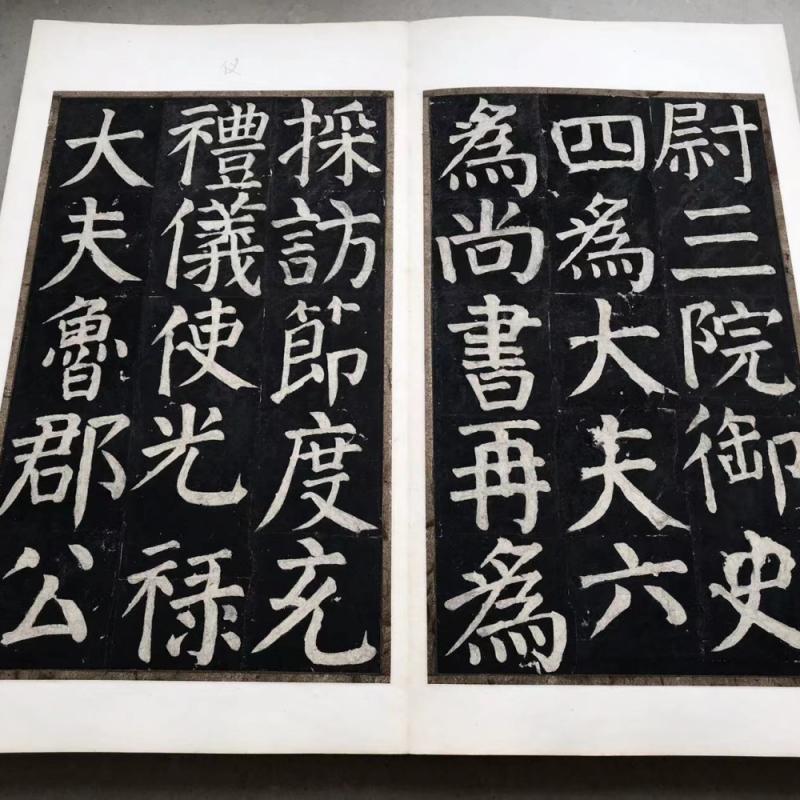 尉三院御史
四為大夫六
為尚書再為
採訪節度充
禮儀使光祿
大夫魯郡公
仪